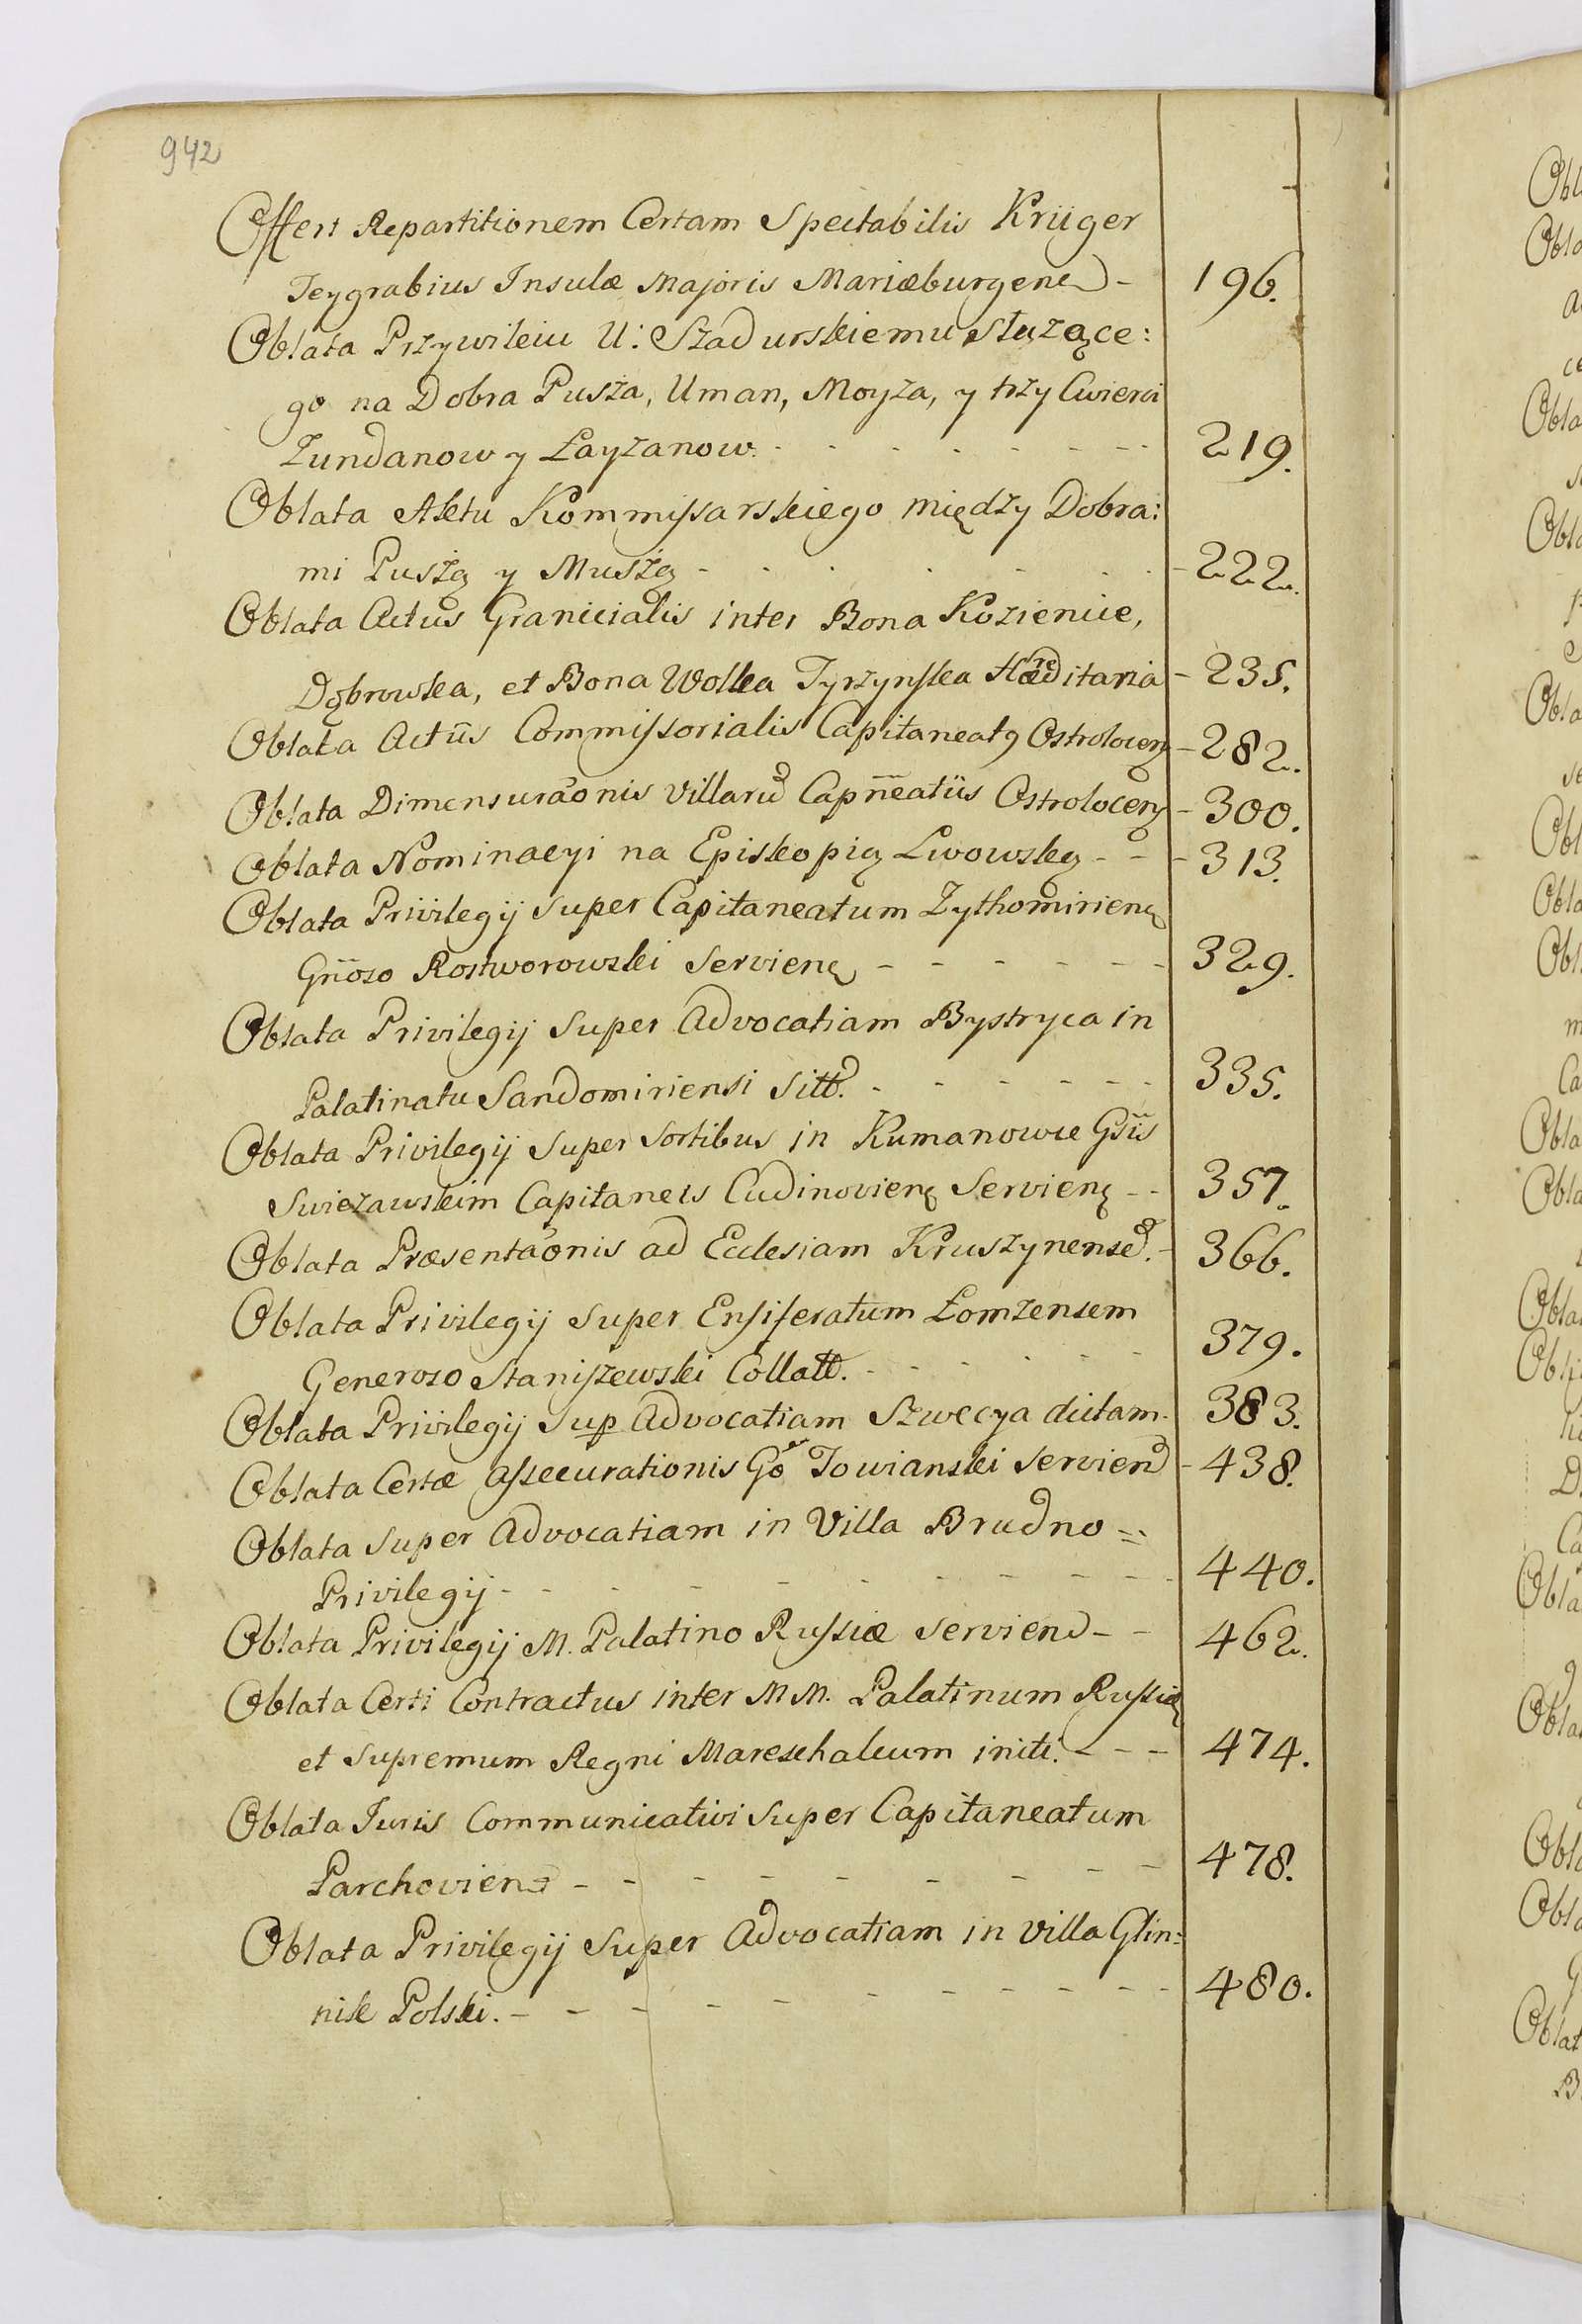 942
Offert Repartitionem Certam Spectabilis Krüger
Teygrabius Insulæ Majoris Mariæburgen - 196.
Oblata Przywileiu U: Szadurskiemu słuzące:
go na Dobra Pusza, Uman, Moyza, y trzy Cwierci
Zundanow y Łayzanow. - - - - - - - 219.
Oblata Aktu Kommissarskiego między Dobra:
mi Puszą y Muszą - - - - - - 222.
Oblata Actus Granicialis inter Bona Kozienice,
Dąbrowka, et Bona Wolka Tyrzynska Hæreditaria - 235.
Oblata Actûs Commissorialis Capitaneatg Ostrolocen - 282.
Oblata Dimensuraonis Villaru Capneatûs Ostrolocen - 300.
Oblata Nominacyi na Episkopią Lwowską - - - 313.
Oblata Privilegij super Capitaneatum Zythomirien
Gnoso Rostworowski Servien - - - - - - 329.
Oblata Privilegij super Advocatiam Bystryca in
Palatinatu Sandomiriensi Sitt. - - - - - - 335.
Oblata Privilegij super sortibus in Kumanowce Gsis
Swiezawskim Capitaneis Cudinovien Servien - - 357.
Oblata Præsentaonis ad Ecclesiam Kruszynense. - 366.
Oblata Privilegij super Ensiferatum Łomzensem
Generoso Staniszewski Collatt. - - - - - - 379.
Oblata Privilegij sup Advocatiam Szwecya dictam. 383.
Oblata Certæ assecurationis Go Towianski servien - 438.
Oblata super Advocatiam in Villa Brudno =
Privilegij - - - - - - - - - - 440.
Oblata Privilegij M. Palatino Russiæ servien - - 462.
Oblata Certi Contractus inter MM. Palatinum Russiæ
et supremum Regni Mareschalcum initi. - - - 474.
Oblata Juris Communicativi super Capitaneatum
Parchovien - - - - - - - - - 478.
Oblata Privilegij super Advocatiam in villa Glin:
nik Polski. - - - - - - - - - - 480.